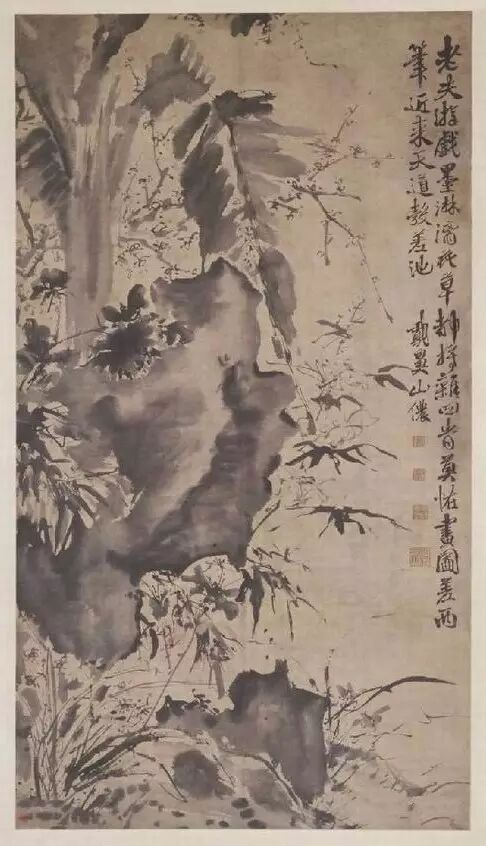 老夫游戲墨淋漓花草都將雜四時莫怪畫圖差兩
筆近來天道彀差池 鵞鼻山儂